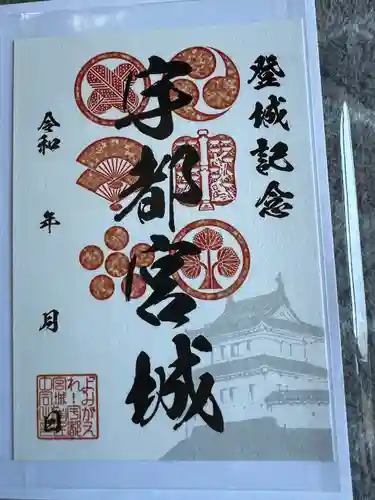 登城記念
宇都宮城
令和 年 月 日
よみがえ
れ!宇都
宮城